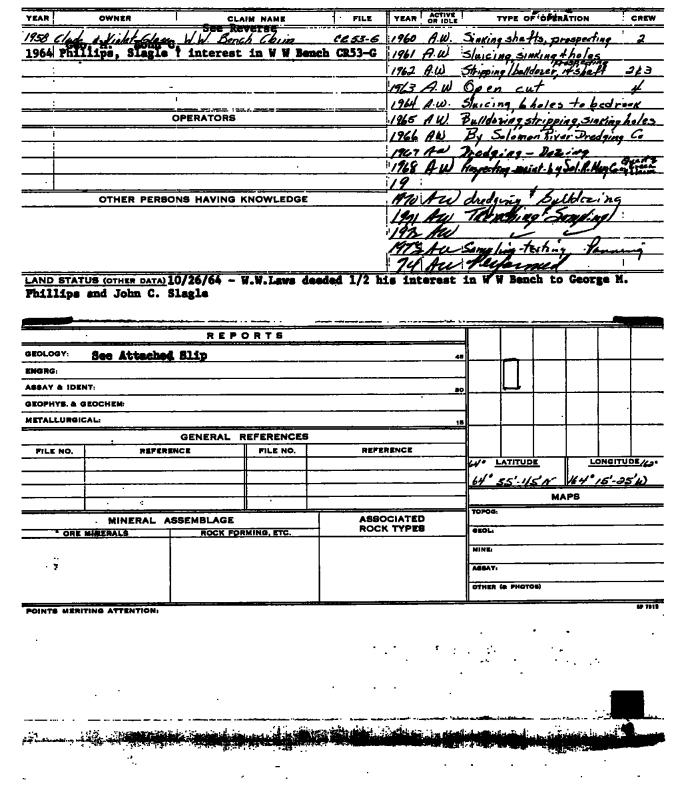 YEAR OWNER CLAIM NAME FILE YEAR ACTIVE OR IDLE TYPE OF OPERATION CREW
See Reverse
1958 Violet Glass W W Bench Claim CR 53-G 1960 A.W. Sinking shafts, prospecting 2
1964 Phillips, Slagle interest in W W Bench CR53-G 1961 A.W Sluicing, sinking holes
1962 A.W Stripping/bulldozer, shaft 2&3
1963 A.W Open cut 4
1964 A.W. Sluicing, 6 holes to bedrock
OPERATORS 1965 A.W. Bulldozing stripping, sinking holes
1966 AW By Solomon River Dredging Co
1967 AW Dredging - Dozing
1968 A-W Prospecting maint. by Sol. R.
19
OTHER PERSONS HAVING KNOWLEDGE 1970 AW dredging & bulldozing
1971 AW Trenching & Sampling
1972 AW
1973 AW Sampling-testing Panning
74 AW Performed
LAND STATUS (OTHER DATA) 10/26/64 - W.W.Laws deeded 1/2 his interest in W W Bench to George M.
Phillips and John C. Slagle
REPORTS
GEOLOGY: See Attached Slip
ENGRG:
ASSAY & IDENT:
GEOPHYS. & GEOCHEM:
METALLURGICAL:
GENERAL REFERENCES
FILE NO. REFERENCE FILE NO. REFERENCE
64° LATITUDE LONGITUDE
64° 55'-45" N 164° 15'-25' W
MAPS
TOPOG:
GEOL:
MINE:
ASSAY:
OTHER (& PHOTOS)
MINERAL ASSEMBLAGE ASSOCIATED ROCK TYPES
ORE MINERALS ROCK FORMING, ETC.
POINTS MERITING ATTENTION: